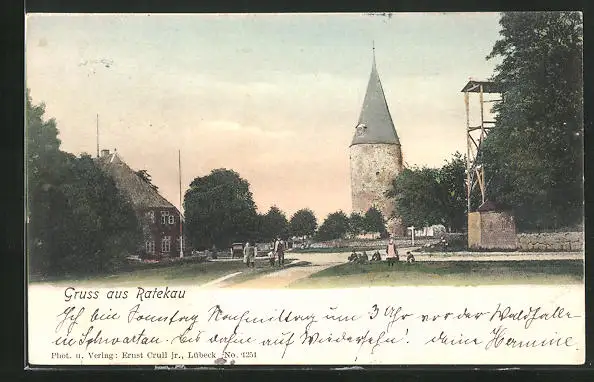 Gruss aus Ratekau
Ich bin Sonntag Nachmittag um 3 Uhr vor der Waldhalle
in Schwartau. Bis dahin auf Wiedersehn! deine Hermine.
Phot. u. Verlag: Ernst Crull jr., Lübeck No. 1251